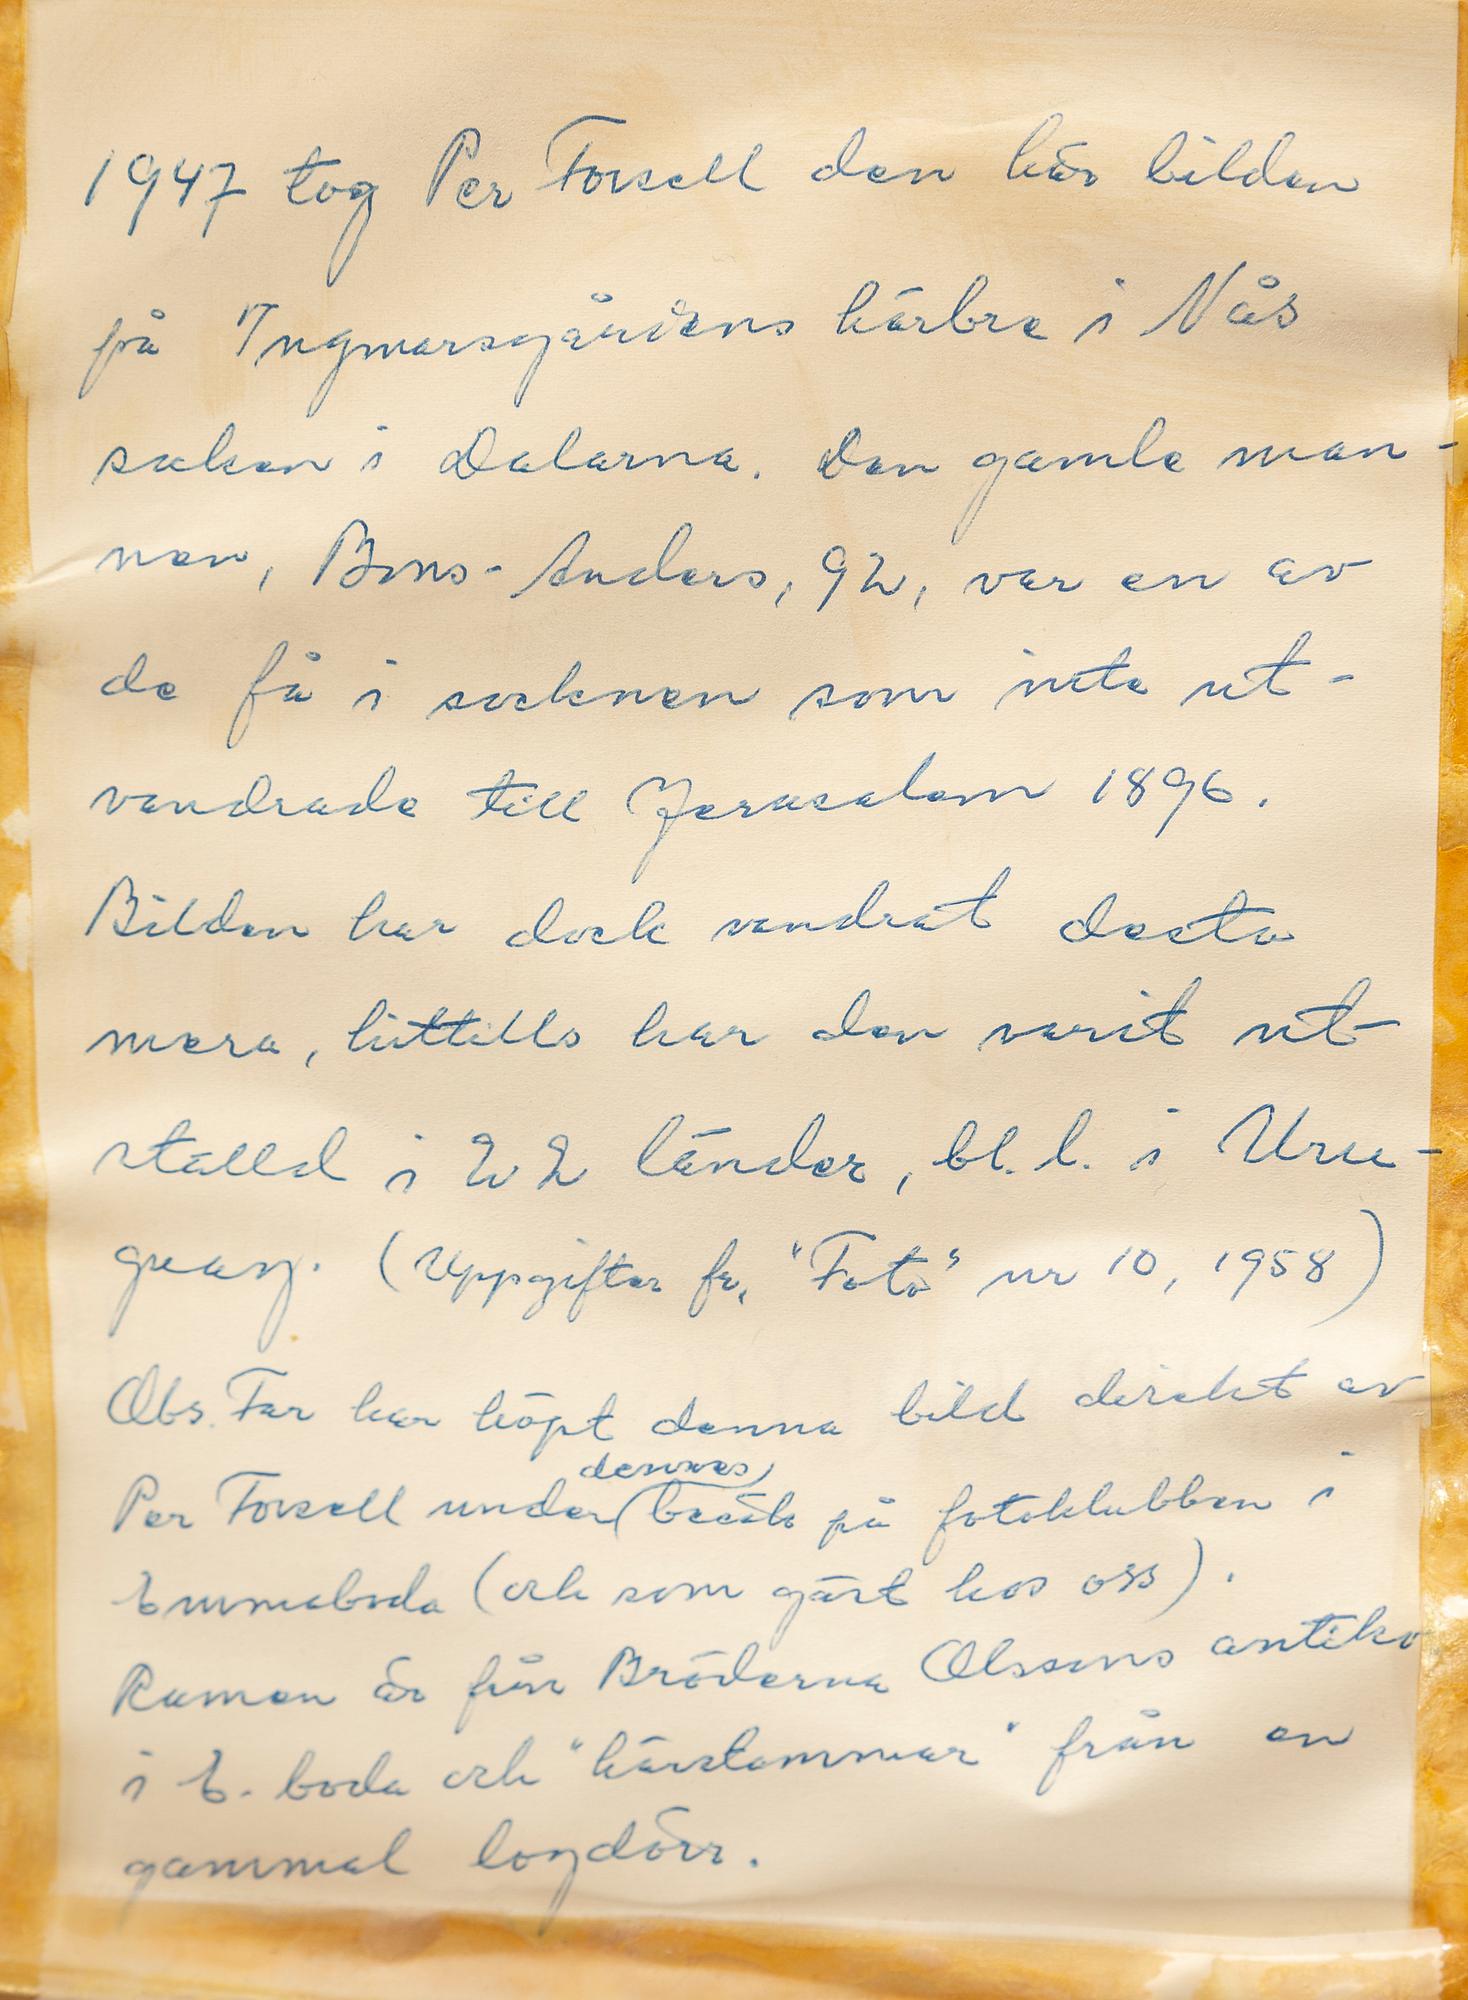 1947 tog Per Forsell den här bilden
på Ingmarsgårdens härbre i Nås
socken i Dalarna. Den gamle man-
nen, Bons-Anders, 92, var en av
de få i socknen som inte ut-
vandrade till Jerusalem 1896.
Bilden har dock vandrat desto
mera, hittills har den varit ut-
ställd i 22 länder, bl. l. i Uru-
guay. (Uppgifter fr. "Foto" nr 10, 1958)
Obs. Far har köpt denna bild direkt av
dennes
Per Forsell under (besök på fotoklubben i
Emmaboda (och som gäst hos oss).
Ramen är från Bröderna Olssons antikv
i E. boda och "härstammar" från en
gammal logdörr.